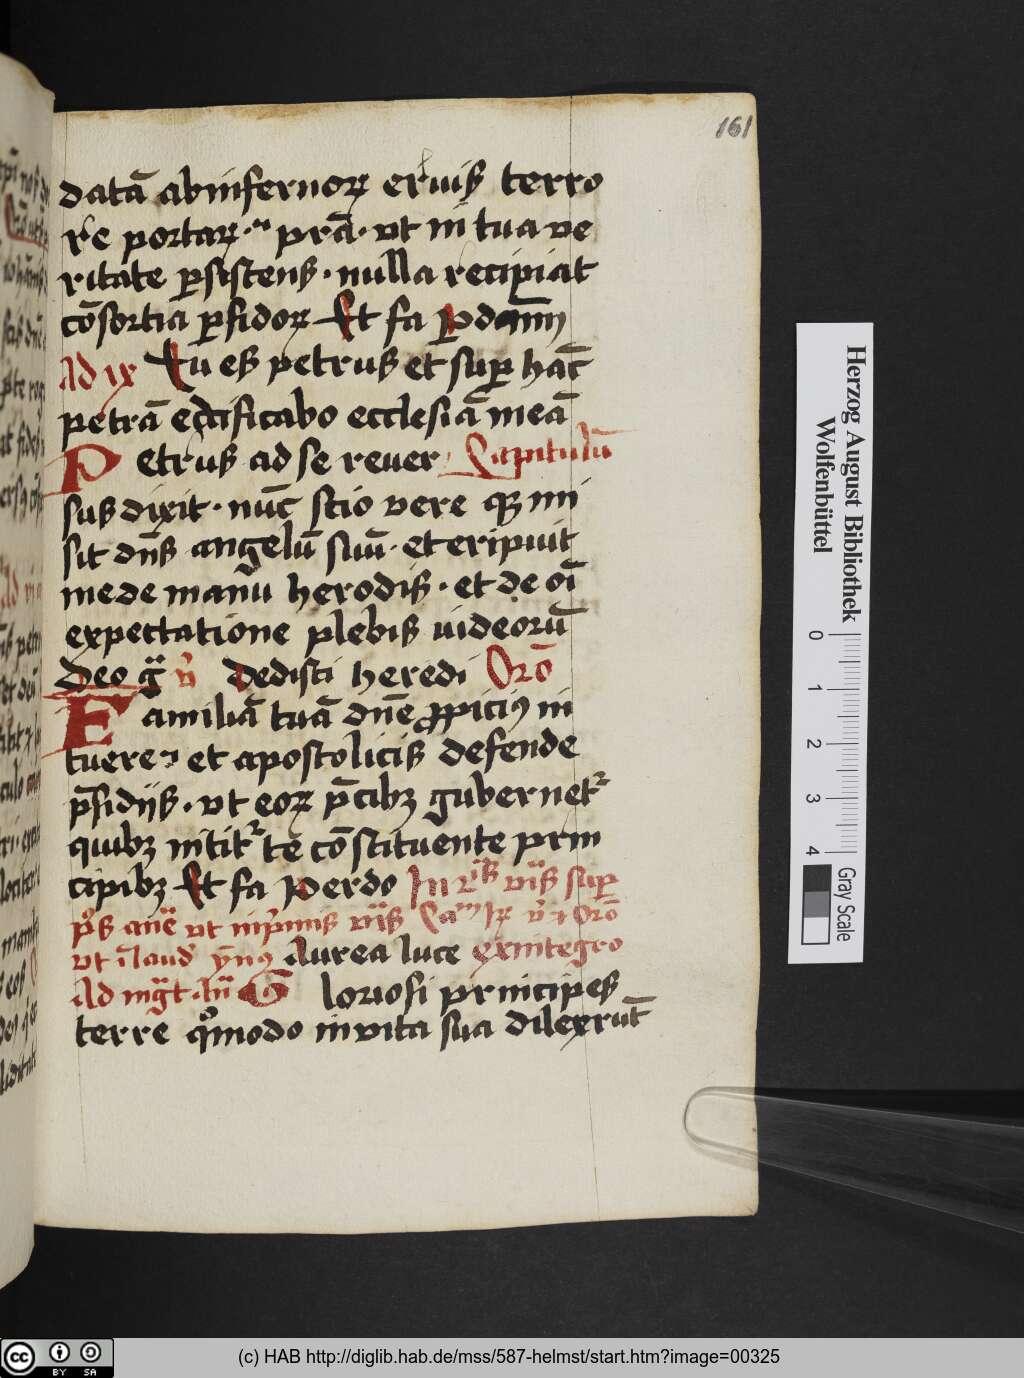 161
datā abinfernorꝝ eruiß terro
re portarꝝ · p̄rā · vt in tua ve
ritate ꝑsistens · nulla recipiat
cōsortia ꝑfidorꝝ Et fa
Ad ix Tu es petrus et suꝑ hāc
petrā edificabo ecclesiā meā
Petrus ad se reuer Capitulū
sus dixit · nūc scio vere qꝫ mi
sit dn̄s angelū suū · et eripuit
me de manu herodis · et de oī
expectatione plebis iudeorū
Deo gͣ v̄ dedisti heredi Orō
Familiā tuā dn̄e ꝓpiciꝰ in
tuere et apostolicis defende
p̄sidijs · vt eorꝝ p̄cibꝫ gubernetr
quibꝫ nitit͛ te cōstituente prin
cipibꝫ Et fa Perdo In vīs suꝑ
pōs an̄e vt inprimis vīs Cam v̄ Orō
vt ī laud ẏmnꝰ Aurea luce exintegro
Ad mgͣt · an̄ Gloriosi principes
terre qͦmodo invita sua dilexrūt
Herzog August Bibliothek
Wolfenbüttel
0 1 2 3 4
Gray Scale
cc BY SA
(c) HAB http://diglib.hab.de/mss/587-helmst/start.htm?image=00325